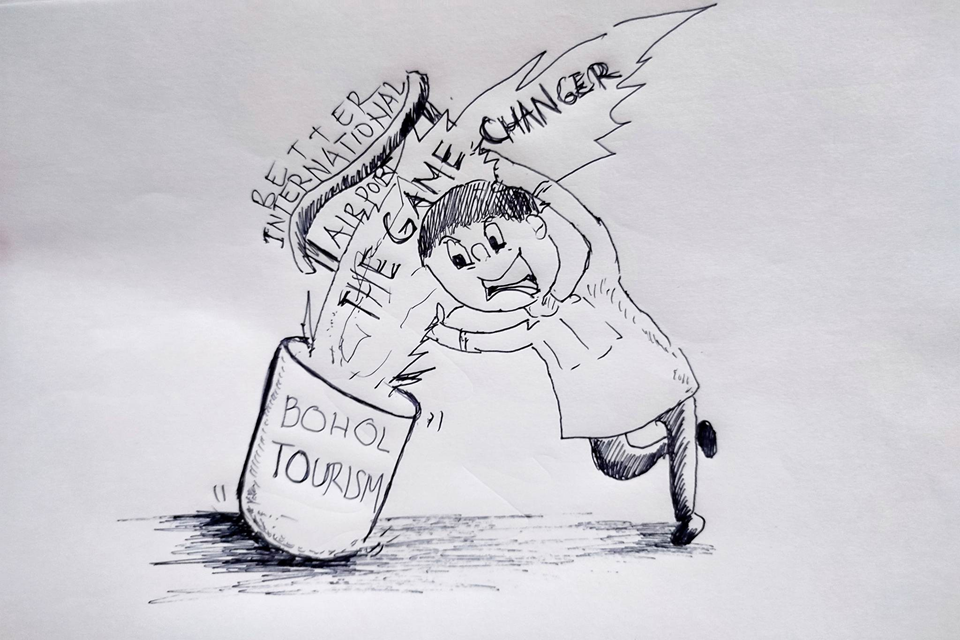 BETTER
INTERNATIONAL
AIRPORT
THE GAME CHANGER
BOHOL
TOURISM